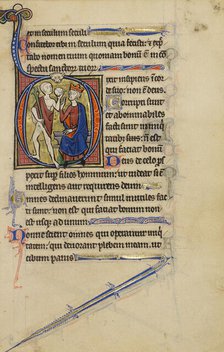 num in seculum seculi
Confitebor tibi in seculum quia fecisti: et expec
tabo nomen tuum quoniam bonum est in con
spectu sanctorum tuorum
ixit insipiens
in corde suo
non est deus
Corrupti sunt
et abominabiles
facti sunt
non est qui faciat
bonum
Deus de celo p
spexit super filios hominum: ut videat si est
intelligens aut requirens deum
Omnes declinaverunt simul inutiles fac
ti sunt: non est qui faciat bonum non
est usque ad unum
Nonne scient omnes qui operantur iniqui
tatem: qui devorant plebem meam. ut
cibum panis